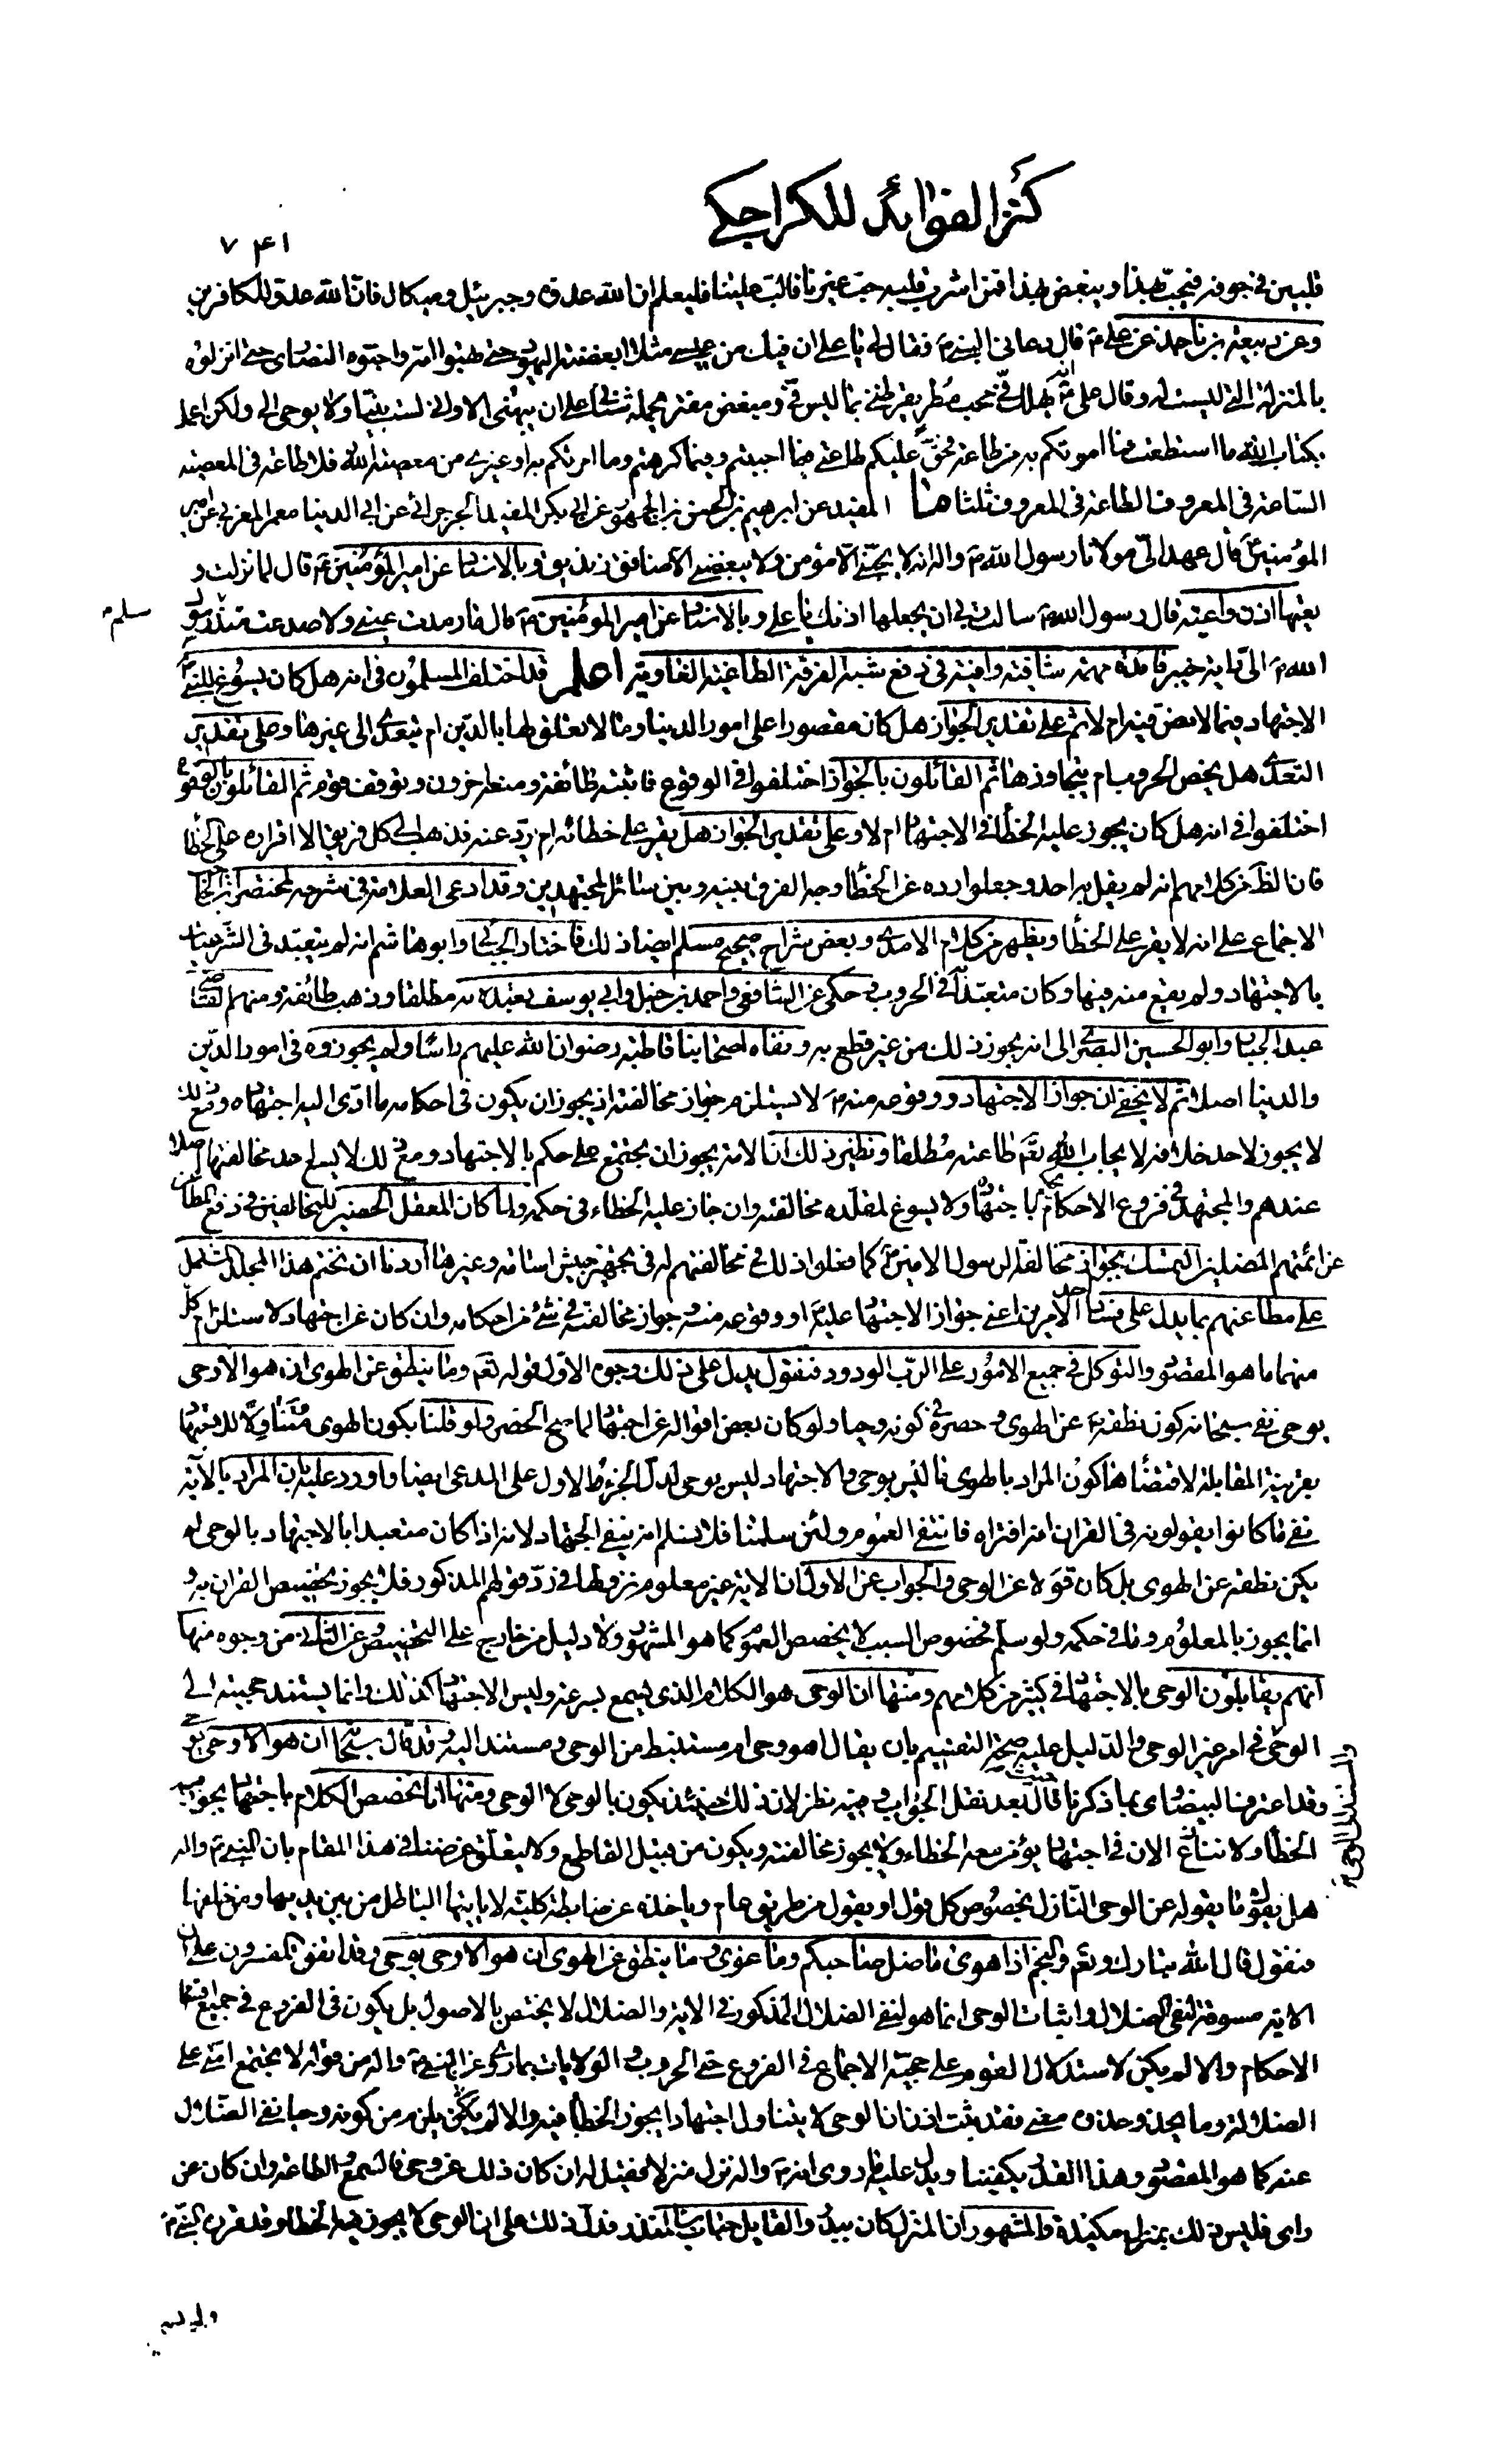 كنز الفوائد للكراجكي
٧ ٤١
قلبين في جوفه فيحب بهذا ويبغض بهذا فمن اشرب قلبه حب غيرنا فالب علينا فليعلم ان الله عدوه وجبرئيل وميكال فان الله عدو للكافرين
وعن ربيعة بن ناجد عن علي ع قال دعاني النبي ص فقال لي يا علي ان فيك من عيسى مثلا ابغضته اليهود حتى بهتوا امه واحبوه النصارى حتى انزلوه
بالمنزلة التي ليست له وقال علي ع انه يهلك في محب مطر يقرظني بما ليس في ومبغض مفتر يحمله شنئاني على ان يبهتني الا واني لست بنبي ولا يوحى الي ولكن اعمل
بكتاب الله ما استطعت فما امرتكم به من طاعة فحق عليكم طاعتي فيما احببتم وفيما كرهتم وما امرتكم به او غيري من معصية الله فلا طاعة في المعصية
الطاعة في المعروف الطاعة في المعروف ثلثا هنا المفيد عن ابرهيم بن الحسن بن الجمهور عن ابي بكر المفيد الجرجرائي عن ابي الدنيا معمر المغربي عن امير
المؤمنين ع قال عهد الي مولانا رسول الله ص واله انه لا يحبني الا مؤمن ولا يبغضني الا منافق زنديق وبالاسناد عن امير المؤمنين ع قال لما نزلت و
تعيها اذن واعية قال رسول الله ص سالت ربي ان يجعلها اذنك يا علي وبالاسناد عن امير المؤمنين ع قال ما رمدت عيني ولا صدعت منذ دفع رسول
سلم
الله ص الي راية خيبر فائدة مهمة شافية وافية في دفع شبه الفرقة الطاغية الغاوية اعلم قد اختلف المسلمون في انه هل كان يسوغ للنبي ص
الاجتهاد فيما لا نص فيه ام لا ثم على تقدير الجواز هل كان مقصورا على امور الدنيا وما لا تعلق لها بالدين ام يتعدى الى غيرها وعلى تقدير
التعدي هل يخص الحروب ام يتجاوزها ثم القائلون بالجواز اختلفوا في الوقوع فاثبته طائفة ومنعه اخرون وتوقف قوم ثم القائلون بالوقوع
اختلفوا في انه هل كان يجوز عليه الخطأ في الاجتهاد ام لا وعلى تقدير الجواز هل يقر على خطائه ام يرد عنه فذهب الى كل فريق الا اقراره على الخطأ
فان الظ من كلامهم انه لم يقل به احد وجعلوا رده عن الخطأ وجه الفرق بينه وبين سائر المجتهدين وقد ادعى العلامة في شرحه لمختصر ابن الحاجب
الاجماع على انه لا يقر على الخطأ ويظهر من كلام الامدي وبعض شراح صحيح مسلم ايضا ذلك فاختار الجبائي وابو هاشم انه لم يتعبد في الشرعيات
بالاجتهاد ولم يقع منه فيها وكان متعبدا به في الحروب وحكى عن الشافعي واحمد بن حنبل وابي يوسف تعبده به مطلقا وذهب طائفة ومنهم القاضي
عبد الجبار وابو الحسين البصري الى انه يجوز ذلك من غير قطع به ونفاه اصحابنا قاطبة رضوان الله عليهم راسا ولم يجوزوه في امور الدين
والدنيا اصلا ثم لا يخفى ان جواز الاجتهاد ووقوعه منه ص لا يستلزم جواز مخالفته اذ يجوز ان يكون في احكامه ما ادى اليه اجتهاده ومع ذلك
لا يجوز لاحد خلافه لايجاب الله تعم طاعته مطلقا ونظير ذلك ان الامة يجوز ان يجتمع على حكم بالاجتهاد ومع ذلك لا يسع احد مخالفتها اصلا
عندهم والمجتهد في فروع الاحكام يحكم باجتهاده ولا يسوغ لمقلده مخالفته وان جاز عليه الخطاء في حكمه ولما كان المعقل الحصين للمخالفين في دفع المطاعن
عن ائمتهم المضلين التمسك بجواز مخالفة الرسول الامين ص كما فعلوا ذلك في مخالفتهم له في تجهيز جيش اسامة وغيرها اردنا ان نختم هذا المجلد المشتمل
على مطاعنهم بما يدل على فساد احد الامرين اعني جواز الاجتهاد عليه ص او وقوعه منه وجواز مخالفته في شئ من احكامه وان كان عن اجتهاد لاستلزام كل
منهما ما هو المقصود والتوكل في جميع الامور على الرب الودود فنقول يدل على ذلك وجوه الاول قوله تعم وما ينطق عن الهوى ان هو الا وحي
يوحى نفى سبحانه كون نطقه ص عن الهوى وحصره في كونه وحيا ولو كان بعض اقواله عن اجتهاد لما صح الحصر ولو قلنا بكون الهوى متناولا للاجتهاد
بقرينة المقابلة لاقتضائها كون المراد بالهوى ما ليس بوحي والاجتهاد ليس بوحي لدل الجزء الاول على المدعى ايضا واورد عليه بان المراد بالاية
نفي ما كانوا يقولونه في القران انه افتراه فانتفى العموم ولئن سلمنا فلا نسلم انه ينفي الاجتهاد لانه اذا كان متعبدا بالاجتهاد بالوحي لم
يكن نطقه عن الهوى بل كان قولا عن الوحي والجواب عن الاول ان الاية غير معلوم نزولها في رد قولهم المذكور فلا يجوز تخصيص القران به و
انما يجوز بالمعلوم وما في حكمه ولو سلم فخصوص السبب لا يخصص العموم كما هو المشهور ولا دليل من خارج على التخصيص وعن الثاني من وجوه منها
انهم يقابلون الوحي بالاجتهاد في كثير من كلامهم ومنها ان الوحي هو الكلام الذي يسمع بسرعة وليس الاجتهاد كذلك وانما يستند حجيته الى
الوحي في امر غير الوحي والدليل عليه صحة التقسيم بان يقال اهو وحي ام مستنبط من الوحي ومستند اليه وقد قال سبحانه ان هو الا وحي يوحى
والمستند الى الوحي
وقد اعترف البيضاوي بما ذكرنا حيث قال بعد نقل الجواب وفيه نظر لان ذلك حينئذ يكون بالوحي لا الوحي ومنها انا نخصص الكلام باجتهاد يجوز فيه
الخطأ ولا ننازع الان في اجتهاد يؤمن معه الخطاء ولا يجوز مخالفته ويكون من قبيل القاطع ولا يتعلق غرضنا في هذا المقام بان النبي ص واله
هل يقول ما يقوله عن الوحي النازل بخصوص كل قول او يقول من طريق عام وياخذه عن ضابطة كلية لا ياتيها الباطل من بين يديها ومن خلفها
فنقول قال الله تبارك وتعم والنجم اذا هوى ما ضل صاحبكم وما غوى وما ينطق عن الهوى ان هو الا وحي يوحى وقد اتفق المفسرون على ان
الاية مسوقة لنفي الضلال واثبات الوحي انما هو لنفي الضلال المذكور في الاية والضلال لا يختص بالاصول بل يكون في الفروع في جميع اقسام
الاحكام والا لم يكن لاستدلال القوم على حجية الاجماع في الفروع حتى الحروب والولايات بما روي عن النبي ص واله من قوله لا يجتمع امتي على
الضلالة وما يحذو حذوه معنى فقد ثبت اذن ان الوحي لا يتناول اجتهادا يجوز الخطأ فيه والا لم يكن يلزم من كونه وحيا نفي الضلال
عنه كما هو المقصود وهذا القدر يكفينا ويدل عليه ما روى انه ص واله نزل منزلا فقيل له ان كان ذلك عن وحي فالسمع والطاعة وان كان عن
راي فليس ذلك بمنزل مكيدة والمشهور ان المنزل كان ببدر والقايل حباب بن المنذر فدل ذلك على ان الوحي لا يجوز فيه الخطا وقد قرره النبي ص